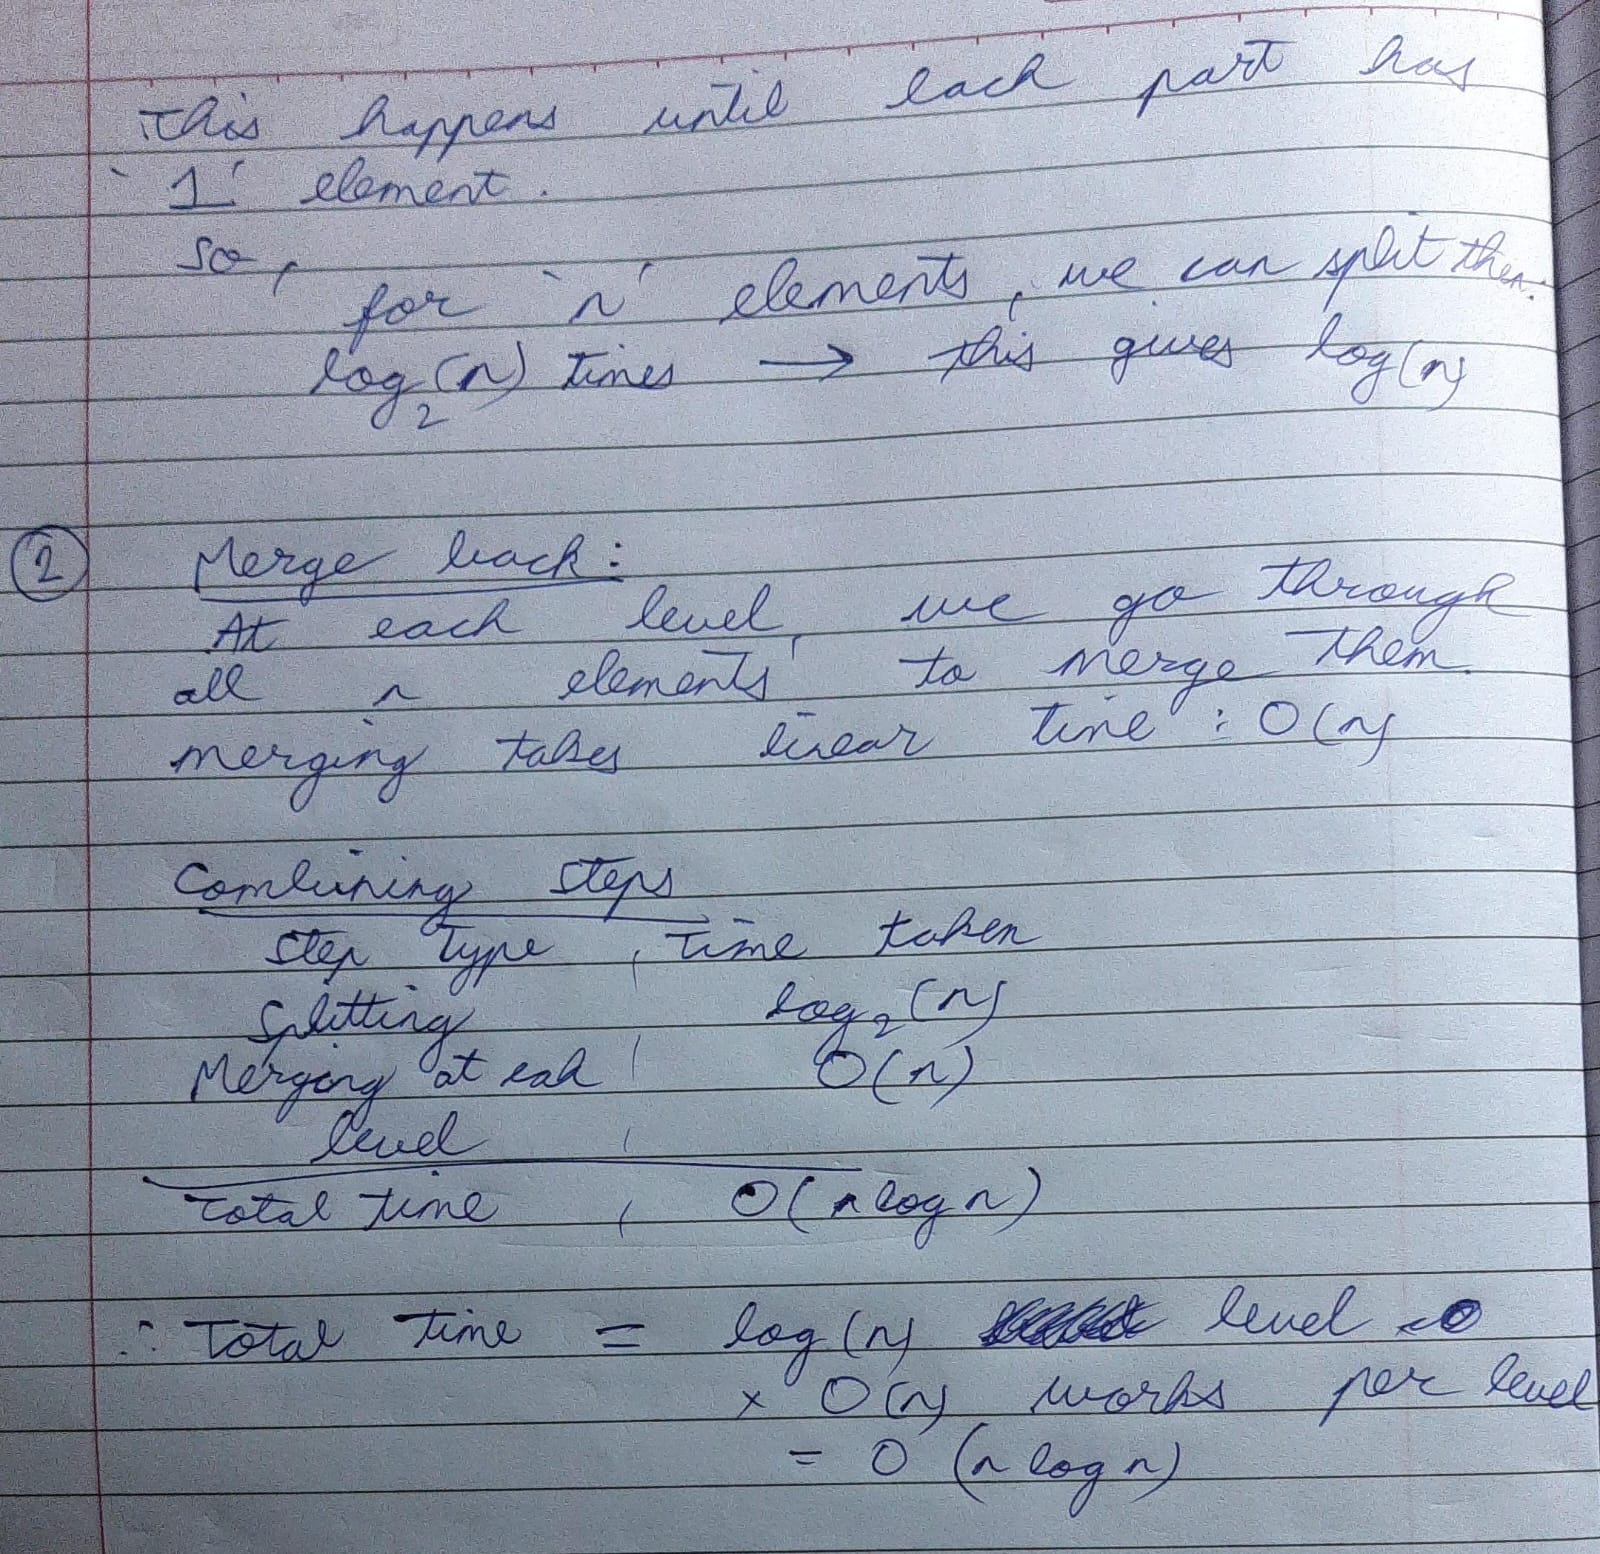 This happens until each part has
`1´ element.
so,
for `n´ elements, we can split them
log₂(n) times → this gives log(n)
② Merge back:
At each level, we go through
all n elements to merge them.
merging takes linear time : O(n)
Combining steps
Step Type | Time taken
Splitting log₂(n)
Merging at eah | O(n)
level |
Total time | O(n log n)
∴ Total time = log(n) level
× O(n) works per level
= O (n log n)